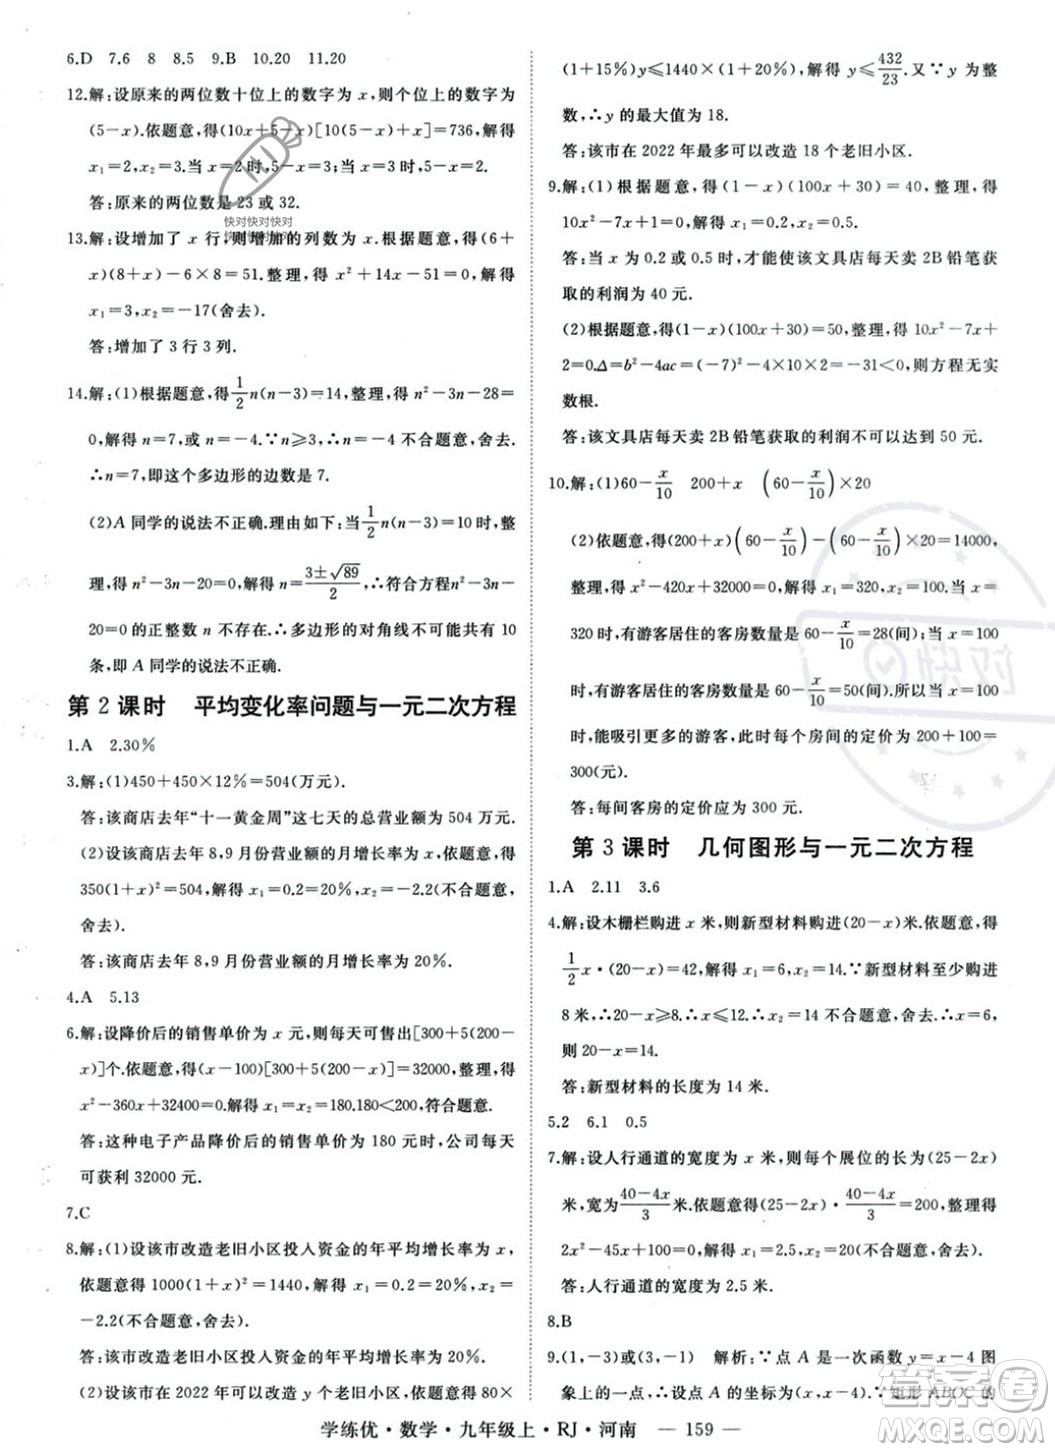 6.D 7.6 8 8.5 9.B 10.20 11.20
12.解:设原来的两位数十位上的数字为 x,则个位上的数字为
(5-x).依题意,得(10x+5-x)[10(5-x)+x]=736,解得
x₁=2,x₂=3.当 x=2时,5-x=3;当 x=3时,5-x=2.
答:原来的两位数是 23 或 32.
快对快对快对
快对快对快对
13.解:设增加了 x 行,则增加的列数为 x.根据题意,得(6+
x)(8+x)-6×8=51.整理,得 x²+14x-51=0.解得
x₁=3,x₂=-17(舍去).
答:增加了 3 行 3 列.
14.解:(1)根据题意,得 1/2 n(n-3)=14,整理,得 n²-3n-28=
0,解得 n=7,或 n=-4.∵n≥3,∴n=-4 不合题意,舍去.
∴n=7,即这个多边形的边数是 7.
(2)A 同学的说法不正确.理由如下:当 1/2 n(n-3)=10 时,整
理,得 n²-3n-20=0,解得 n=(3±√89)/2.∴符合方程n²-3n-
20=0的正整数 n 不存在.∴多边形的对角线不可能共有 10
条,即 A 同学的说法不正确.
第 2 课时 平均变化率问题与一元二次方程
1.A 2.30%
3.解:(1)450+450×12%=504(万元).
答:该商店去年“十一黄金周”这七天的总营业额为 504 万元.
(2)设该商店去年 8,9 月份营业额的月增长率为 x.依题意,得
350(1+x)²=504,解得 x₁=0.2=20%,x₂=-2.2(不合题意,
舍去).
答:该商店去年 8,9 月份营业额的月增长率为 20%.
4.A 5.13
6.解:设降价后的销售单价为 x 元,则每天可售出[300+5(200-
x)]个.依题意,得(x-100)[300+5(200-x)]=32000,整理,得
x²-360x+32400=0,解得 x₁=x₂=180.180<200,符合题意.
答:这种电子产品降价后的销售单价为 180 元时,公司每天
可获利 32000 元.
7.C
8.解:(1)设该市改造老旧小区投入资金的年平均增长率为 x,
依题意得 1000(1+x)²=1440,解得 x₁=0.2=20%,x₂=
-2.2(不合题意,舍去).
答:该市改造老旧小区投入资金的年平均增长率为 20%.
(2)设该市在 2022 年可以改造 y 个老旧小区,依题意得 80×
(1+15%)y≤1440×(1+20%),解得 y≤432/23.又∵y 为整
数,∴y 的最大值为 18.
答:该市在 2022 年最多可以改造 18 个老旧小区.
9.解:(1)根据题意,得(1-x)(100x+30)=40,整理,得
10x²-7x+1=0,解得 x₁=0.2,x₂=0.5.
答:当 x 为 0.2 或 0.5 时,才能使该文具店每天卖 2B 铅笔获
取的利润为 40 元.
(2)根据题意,得(1-x)(100x+30)=50,整理,得 10x²-7x+
2=0.Δ=b²-4ac=(-7)²-4×10×2=-31<0,则方程无实
数根.
答:该文具店每天卖 2B 铅笔获取的利润不可以达到 50 元.
10.解:(1)60-x/10 200+x (60-x/10)×20
(2)依题意,得(200+x)(60-x/10)-(60-x/10)×20=14000,
整理,得x²-420x+32000=0,解得 x₁=320,x₂=100.当 x=
320时,有游客居住的客房数量是 60-x/10=28(间);当 x=100
时,有游客居住的客房数量是 60-x/10=50(间).所以当 x=100
时,能吸引更多的游客,此时每个房间的定价为 200+100=
300(元).
答:每间客房的定价应为 300 元.
第 3 课时 几何图形与一元二次方程
1.A 2.11 3.6
4.解:设木栅栏购进 x 米,则新型材料购进(20-x)米.依题意,得
1/2 x·(20-x)=42,解得 x₁=6,x₂=14.∵新型材料至少购进
8 米,∴20-x≥8.∴x≤12.∴x₂=14 不合题意,舍去.∴x=6,
则 20-x=14.
答:新型材料的长度为 14 米.
5.2 6.1 0.5
7.解:设人行通道的宽度为 x 米,则每个展位的长为(25-2x)
米,宽为(40-4x)/3米.依题意得(25-2x)·(40-4x)/3=200,整理得
2x²-45x+100=0,解得 x₁=2.5,x₂=20(不合题意,舍去).
答:人行通道的宽度为 2.5 米.
8.B
9.(1,-3)或(3,-1) 解析:∵点 A 是一次函数 y=x-4 图
象上的一点,∴设点 A 的坐标为(x,x-4).∵矩形 ABOC 的
学练优·数学·九年级上·RJ·河南 —159—
MXQE.COM